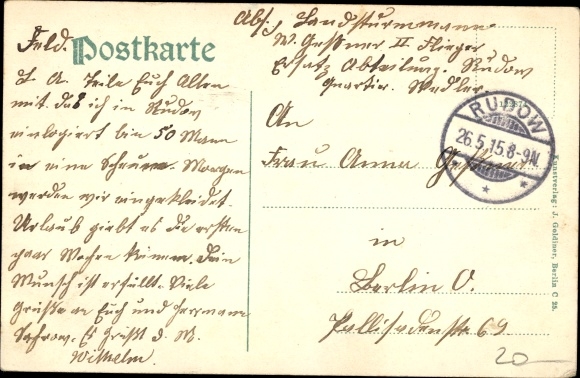 Feld. Postkarte
Abs. Landsturmmann
W. Geßner II Flieger
Ersatz Abteilung. Rudow
Quartier.
L. A. Teile Euch Allen
mit daß ich in Rudow
einlogiert bin 50 Mann
in eine Scheune. Morgen
werden wir eingekleidet.
Urlaub giebt es die ersten
paar Wochen keinen. Dein
Wunsch ist erfüllt. Viele
Grüße an Euch und Hermann
Es Grüßt d. M.
Wilhelm.
An
Frau Anna Geßner
in
Berlin O.
Pallisadenstr 69
RUDOW
26.5.15.8-9N.
* *
Kunstverlag: J. Goldiner, Berlin C 25.
20-